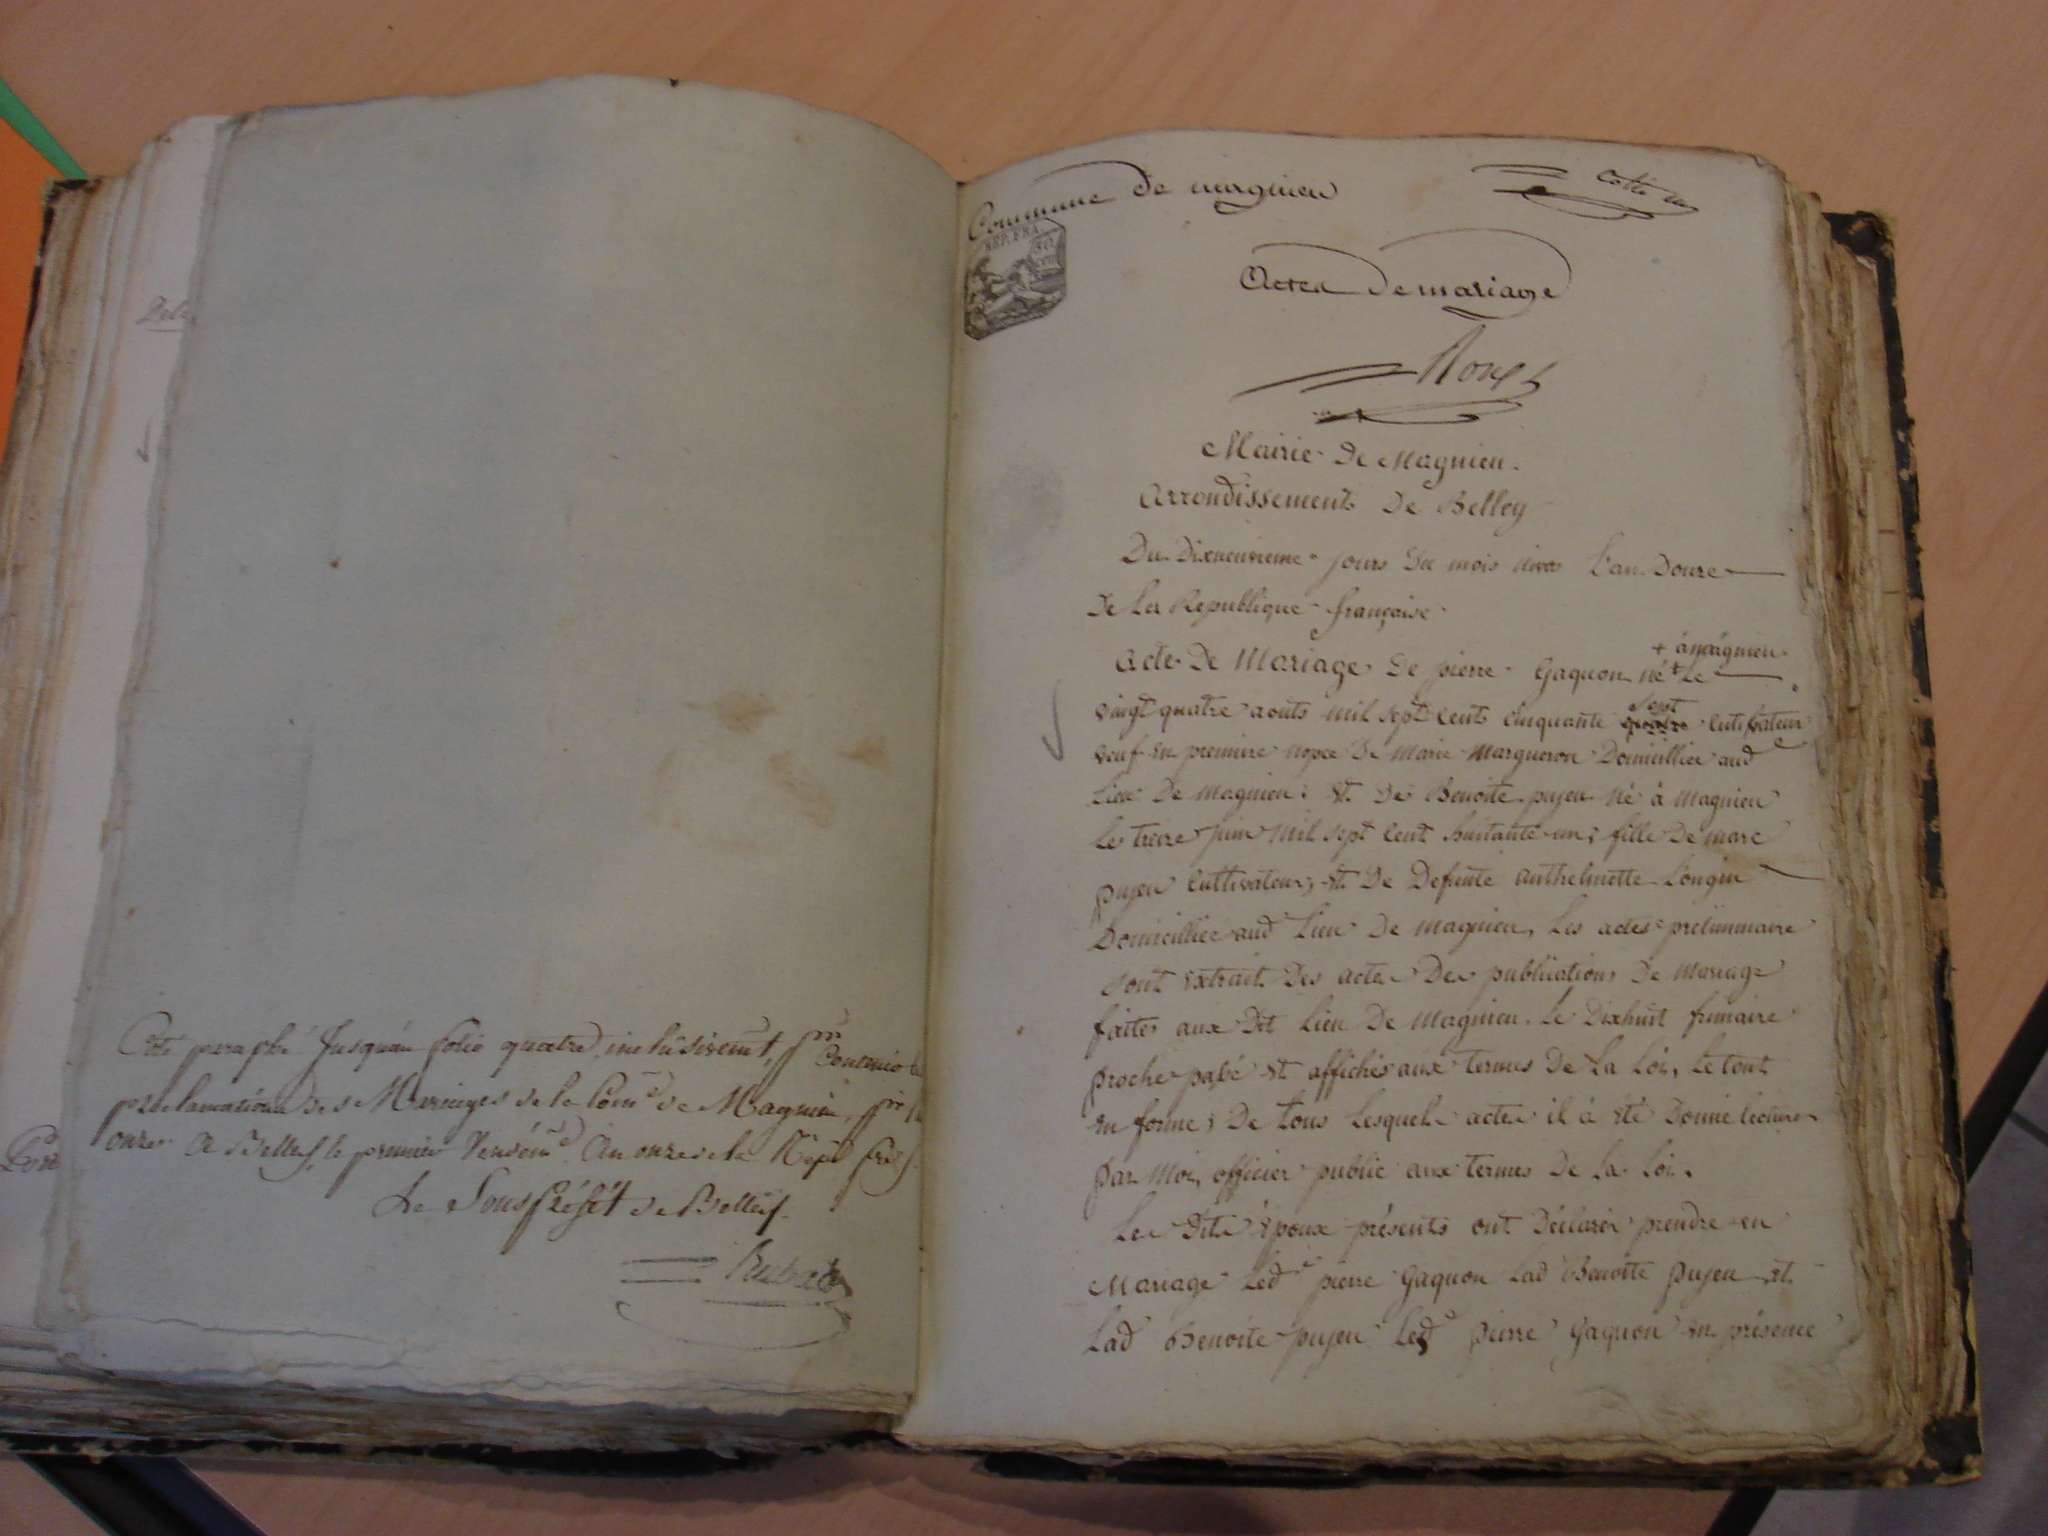 Coté paraphé jusqu'au folio quatre inclusivemt, pr contenir le
proclamations des Mariages de la Come de Magnieu, pr
onze. A Belley, le premier Vendémre An onze de la Répb. frse
Le Sous préfet de Belley
Rubat
Commune de magnieu
REP. FRA.
50
cen
Actes de mariage
Roux
Mairie de Magnieu.
Arrondissement De Belley
Du Dixneuvieme jours du mois nivos L'an Douze
De La Republique française.
+ à magnieu
Acte De Mariage De pierre Gaquon né + Le
sept
vingt quatre aouts mil sept cents cinquante quatre cultivateur
veuf en premiere nopce De marie margueron Domicillié aud
Lieu De magnieu; et De Benoite pujeu né à magnieu
Le treize juin mil sept cent huitante un, fille De marc
pujeu cultivateur, et De Defunte anthelmette Longin
Domicilliée aud Lieu De magnieu, Les actes preliminaire
sont extrait Des actes Des publications De mariage
faites aux Dit Lieu De magnieu. Le Dixhuit frimaire
proche passé et affichés aux termes De La Loi, Le tout
en forme; De tous Lesquels actes il à été Donné lecture
par Moi, officier public aux termes De La Loi.
Les Dits Époux présents ont Déclarér prendre en
Mariage Led pierre Gaquon Lad Benoite pujeu et
Lad Benoite pujeu Led pierre Gaquon en présence